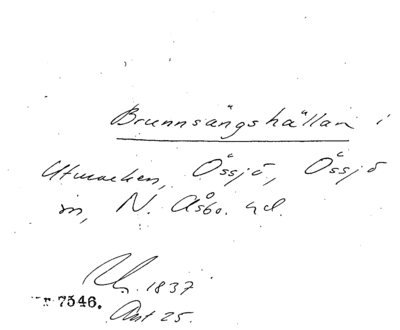 Brunnsängshällan i
Utmarken, Össjö, Össjö
sn, N. Åsbo. hd.
1837
7546. Ant 25.